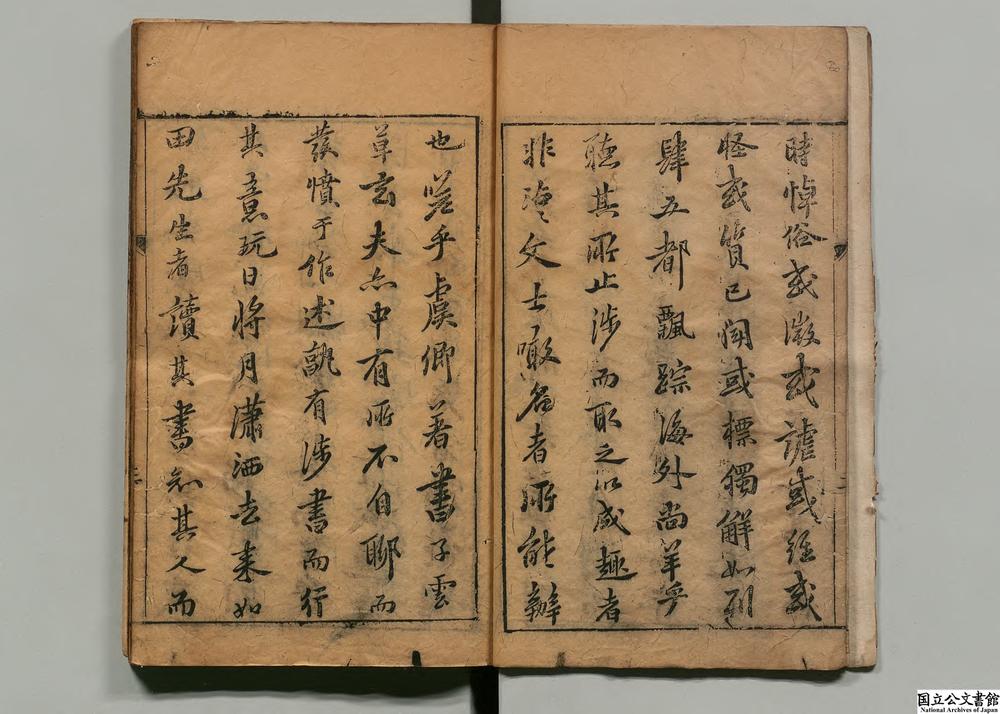 時悼俗或微或謔或經或
怪或質已聞或標獨解如列
肆五都飄踪海外尚羊乎
聽其所止涉而取之以成趣者
非漫文士噉名者所能辦
也嗟乎虞卿著書子雲
草玄夫亦中有所不自聊而
發憤于作述孰有涉書而行
其意玩日將月瀟洒去來如
田先生者讀其書知其人而
国立公文書館
National Archives of Japan